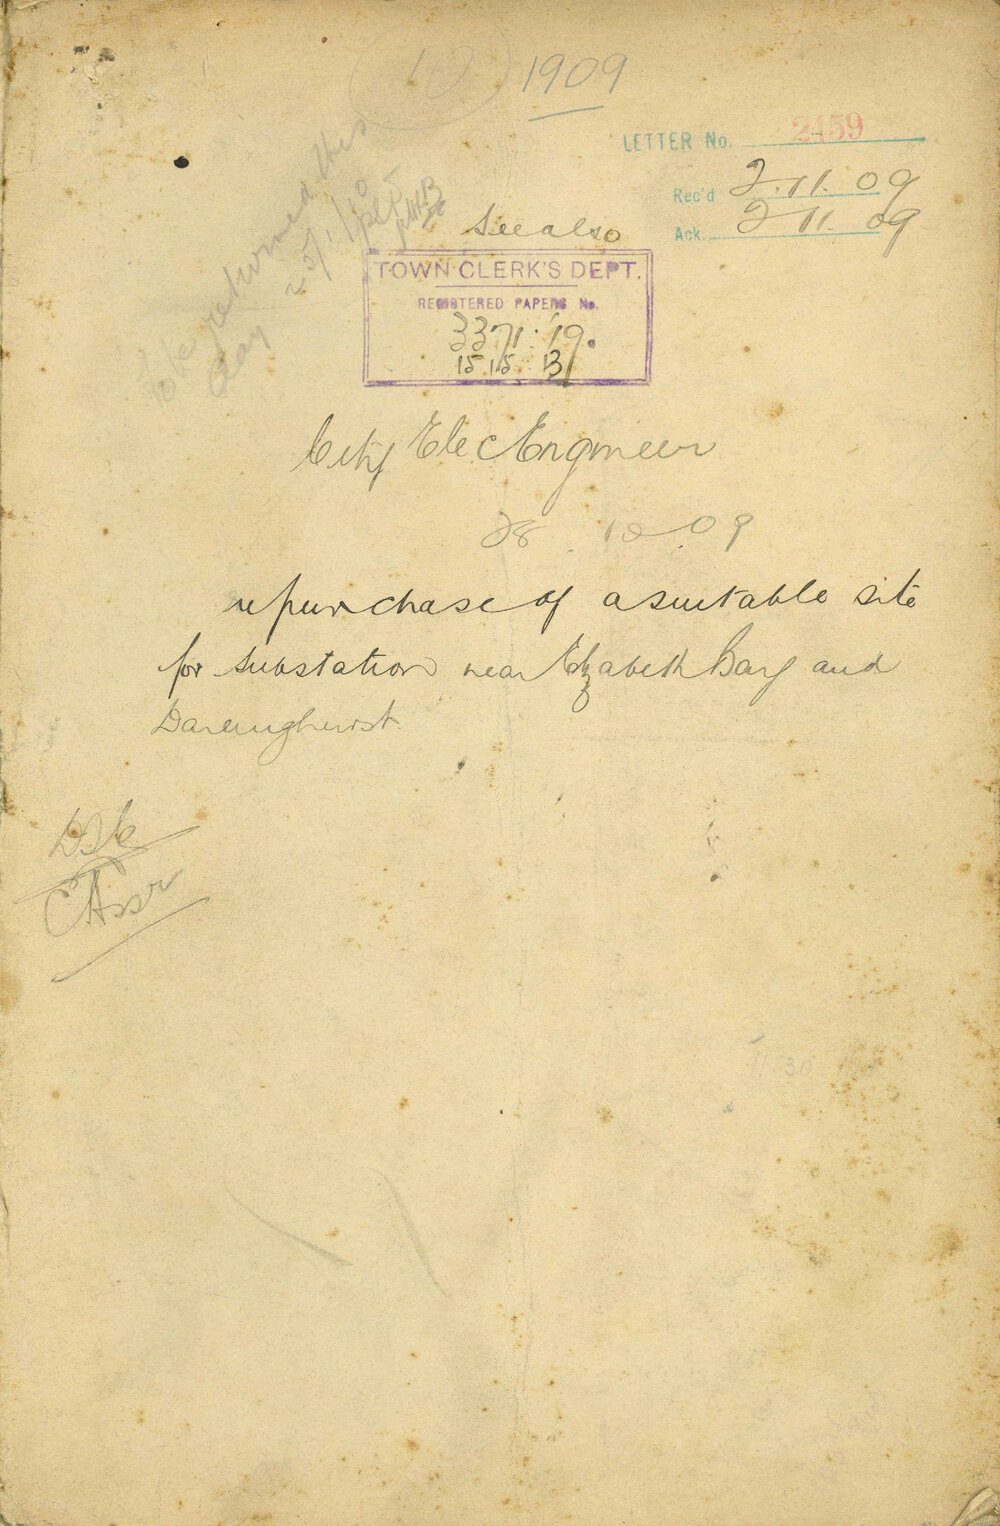 10 1909
LETTER No. 2459
Rec'd 2.11.09
Ack. 2 11.09
to be returned this
day 25/1/10
See also
TOWN CLERK'S DEPT.
REGISTERED PAPERS No.
3371.'19.
1515 13
City Elec Engineer
28.10.09
re purchase of a suitable site
for substation near Elizabeth Bay and
Darlinghurst.
C Assr